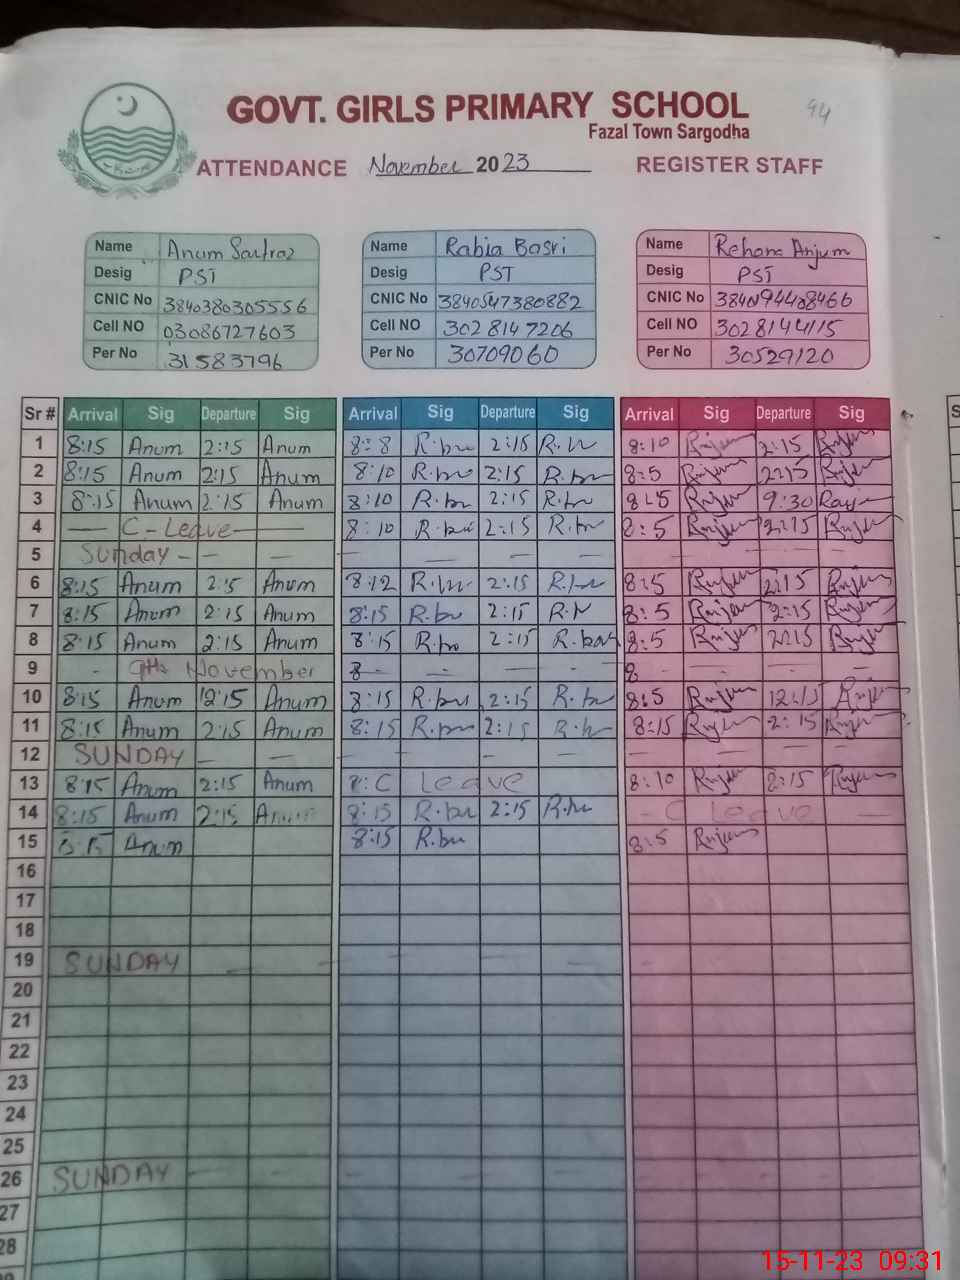 GOVT. GIRLS PRIMARY SCHOOL 94
Fazal Town Sargodha
ATTENDANCE November 2023 REGISTER STAFF
Name Anum Sarfraz Name Rabia Basri Name Rehana Anjum
Desig PST Desig PST Desig PST
CNIC No 3840380305556 CNIC No 3840547380882 CNIC No
Cell NO 03086727603 Cell NO 3028147206 Cell NO 3028144115
Per No 31583796 Per No 30709060 Per No 30529120
Sr # Arrival Sig Departure Sig Arrival Sig Departure Sig Arrival Sig Departure Sig
1 8:15 Anum 2:15 Anum 8:8 R.bu 2:15 8:10 2:15
2 8:15 Anum 2:15 Anum 8:10 2:15 8:5 2:15
3 8:15 Anum 2:15 Anum 8:10 2:15 8:5 9:30
4 — C-Leave — 8:10 2:15 8:5 2:15
5 Sunday - — — — — — —
6 8:15 Anum 2:5 Anum 8:12 2:15 8:5 2:15
7 8:15 Anum 2:15 Anum 8:15 2:15 8:5 2:15
8 8:15 Anum 2:15 Anum 8:15 2:15 8:5 2:15
9 - 9th November 8 — — 8 — —
10 8:15 Anum 12:15 Anum 8:15 2:15 8:5 12:15
11 8:15 Anum 2:15 Anum 8:15 2:15 8:15 2:15
12 SUNDAY — — — — — —
13 8:15 Anum 2:15 Anum C Leave 8:10 2:15
14 8:15 Anum 2:15 Anum 8:15 R.bu 2:15 - C Leave —
15 Anum 8:15 R.bu 8:5
16
17
18
19 SUNDAY — — — — —
20
21
22
23
24
25
26 SUNDAY — — — — —
27
28
15-11-23 09:31